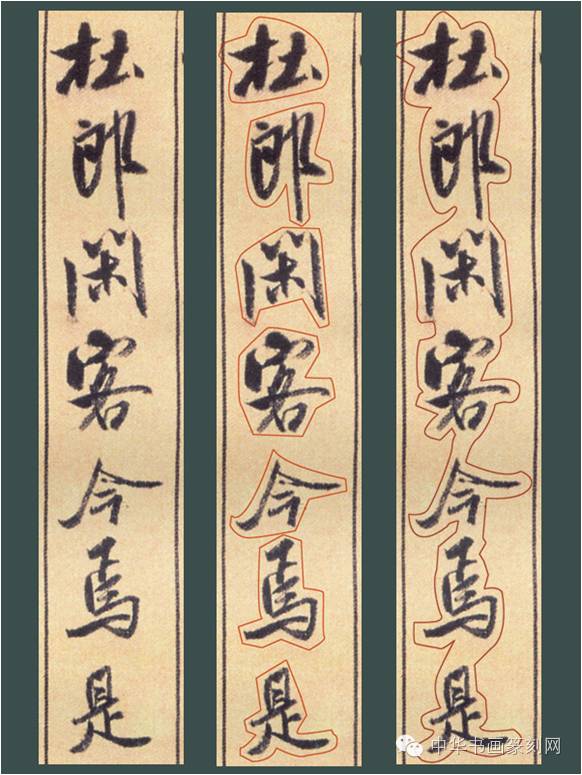 杜郎閑客今焉是
杜郎閑客今焉是
杜郎閑客今焉是
中华书画篆刻网